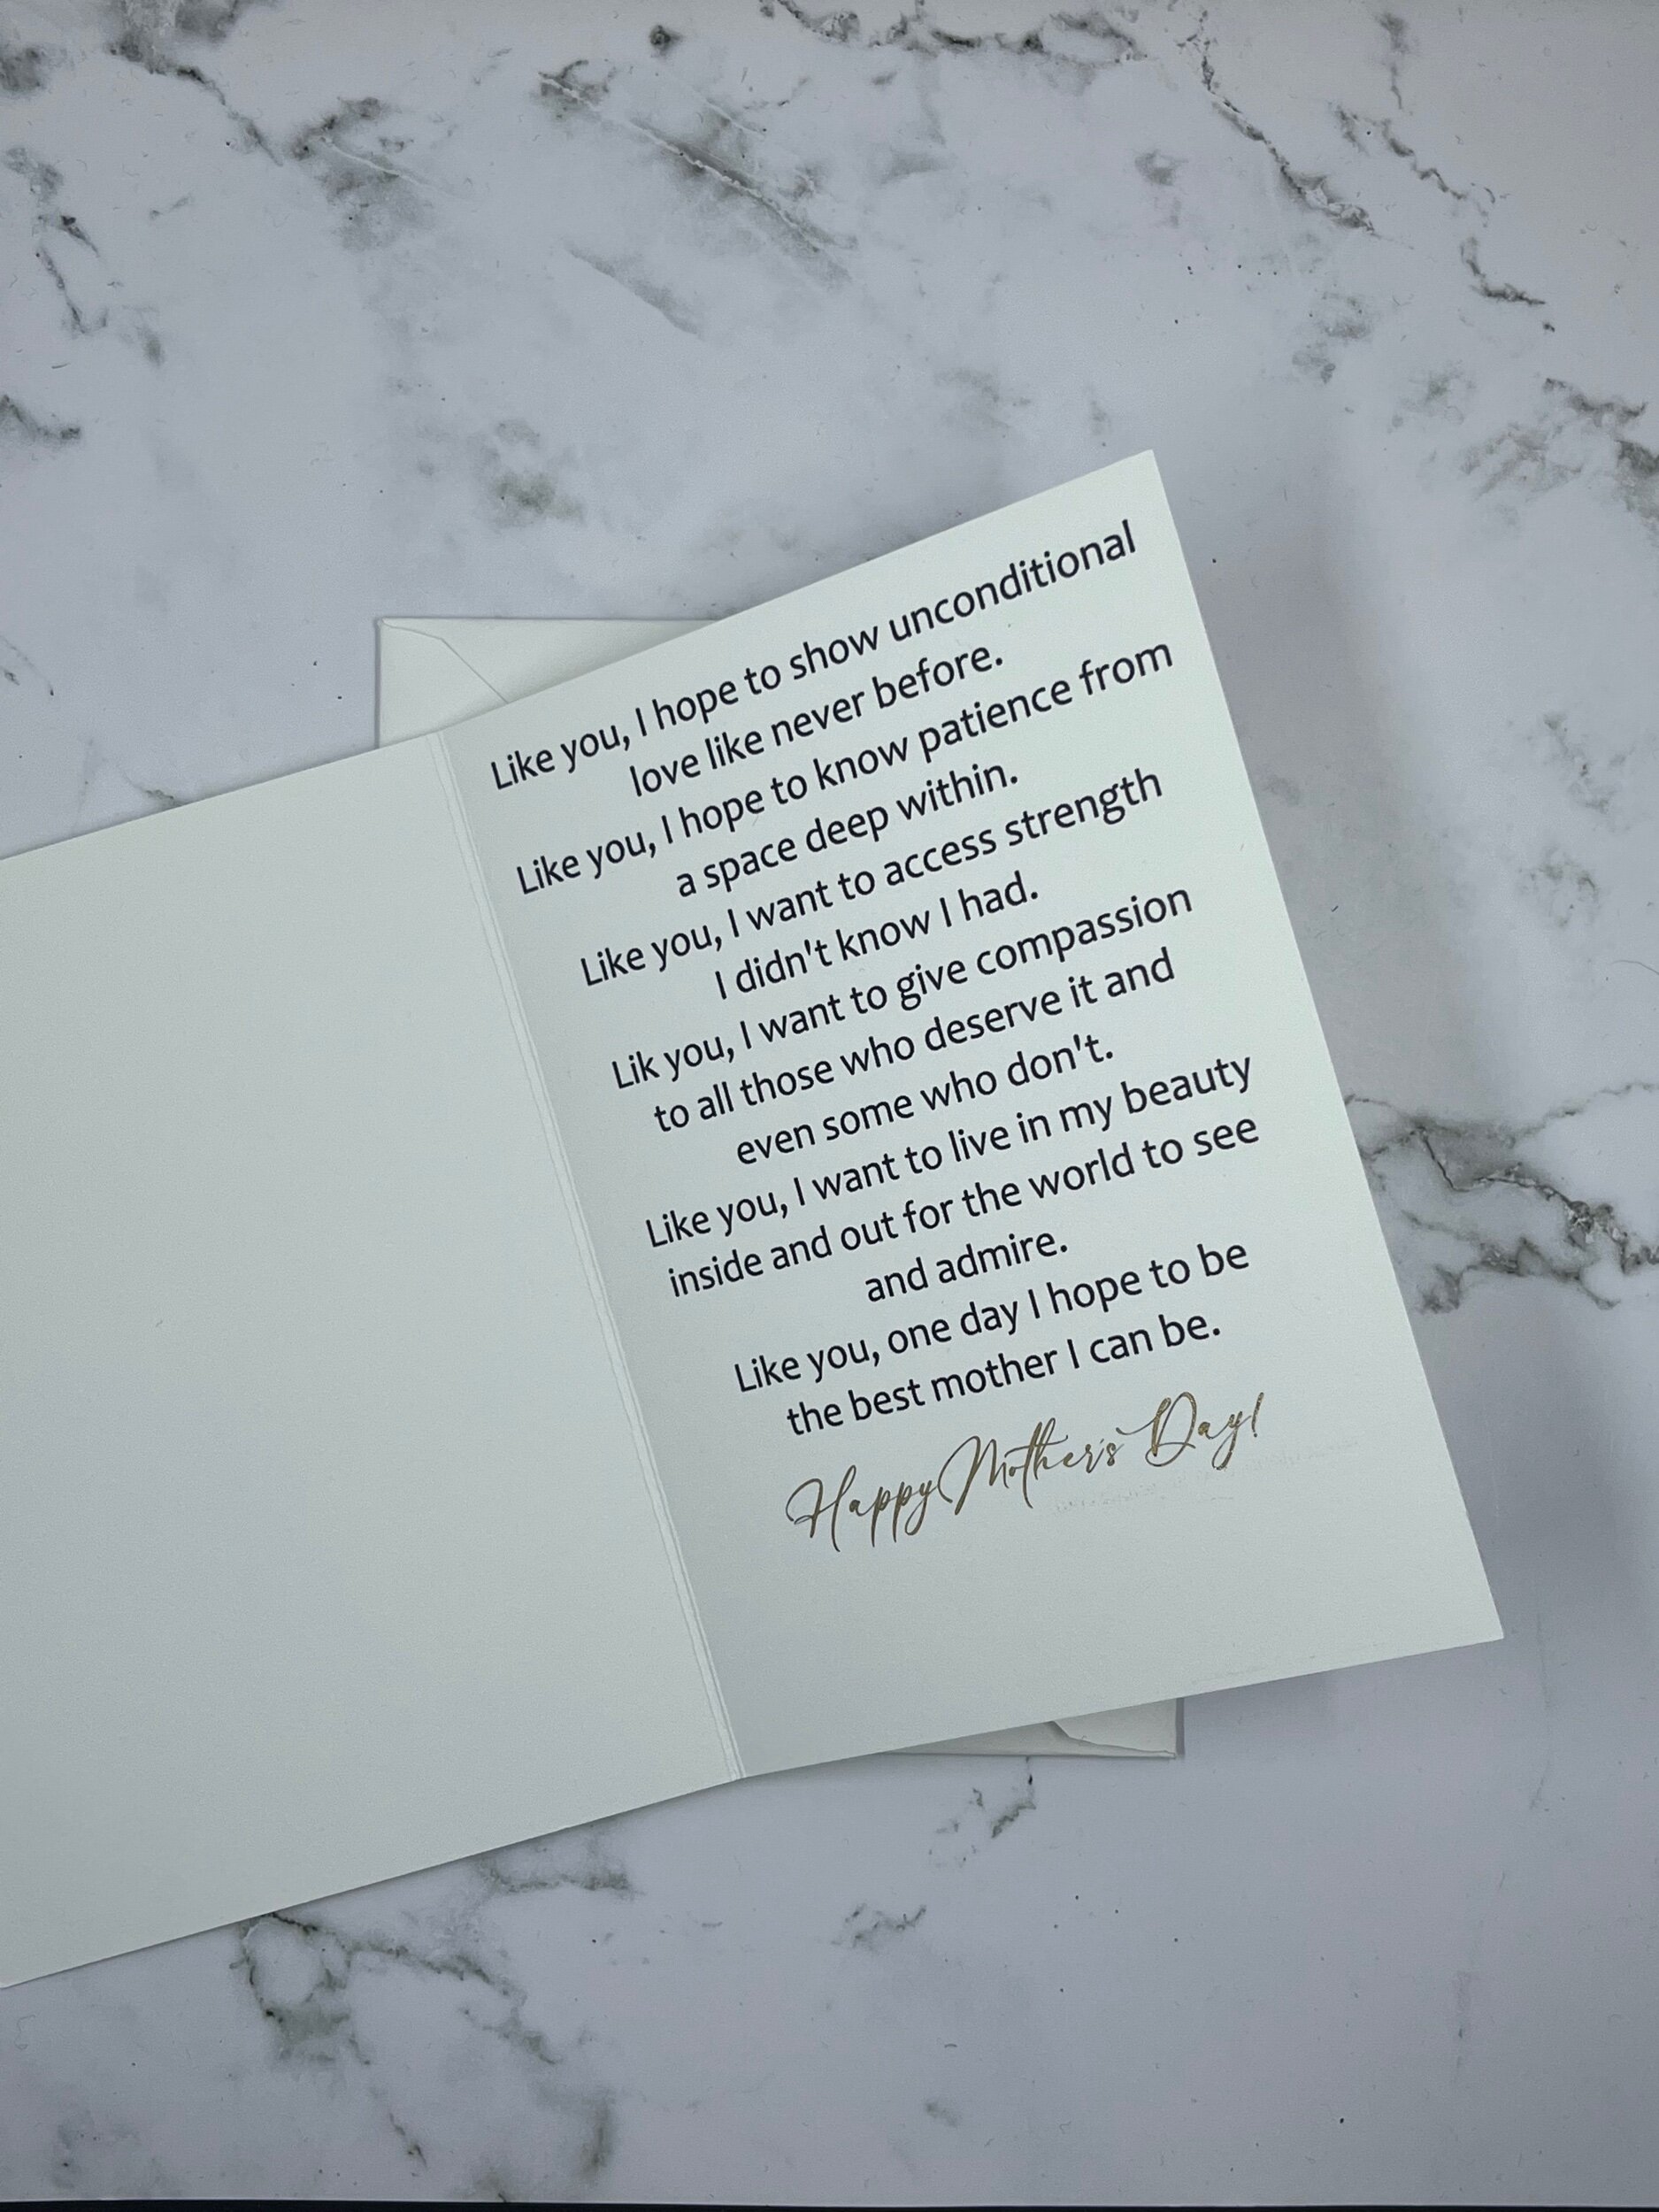 Like you, I hope to show unconditional
love like never before.
Like you, I hope to know patience from
a space deep within.
Like you, I want to access strength
I didn't know I had.
Lik you, I want to give compassion
to all those who deserve it and
even some who don't.
Like you, I want to live in my beauty
inside and out for the world to see
and admire.
Like you, one day I hope to be
the best mother I can be.
Happy Mother's Day!